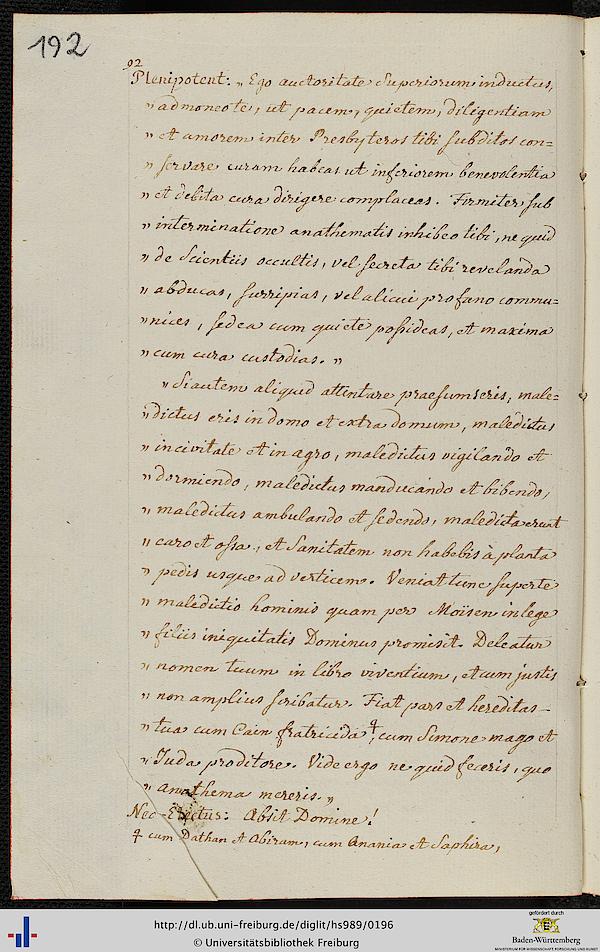 192
92
Plenipotent: „Ego auctoritate Superiorum inductus,
„ admoneo te, ut pacem, quietem, diligentiam
„ et amorem inter Presbyteros tibi subditos con=
„ servare curam habeas ut inferiorem benevolentia
„ et debita cura dirigere complaceas. Firmiter sub
„ interminatione anathematis inhibeo tibi, ne quid
„ de Scientiis occultis, vel secreta tibi revelanda
„ abducas, surripias, vel alicui profano commu=
„ nices, sed ea cum quiete possideas, et maxima
„ cum cura custodias. „
„ Si autem aliquid attintare praesumseris, male=
„ dictus eris in domo et extra domum, maledictus
„ in civitate et in agro, maledictus vigilando et
„ dormiendo, maledictus manducando et bibendo,
„ maledictus ambulando et sedendo, maledicta erunt
„ caro et ossa, et Sanitatem non habebis à planta
„ pedis usque ad verticem. Veniat tunc super te
„ maledictio hominis quam per Moïsen in lege
„ filiis iniquitatis Dominus promisit. Deleatur
„ nomen tuum in libro viventium, et cum justis
„ non amplius scribatur. Fiat pars et hereditas-
„ tua cum Cain fratricida ‡, cum Simone mago et
„ Juda proditore. Vide ergo ne quid feceris, quo
„ anathema mereris. „
Neo-Erectus: Absit Domine!
‡ cum Dathan et Abiram, cum Anania et Saphira,
http://dl.ub.uni-freiburg.de/diglit/hs989/0196
© Universitätsbibliothek Freiburg
gefördert durch
Baden-Württemberg
MINISTERIUM FÜR WISSENSCHAFT, FORSCHUNG UND KUNST